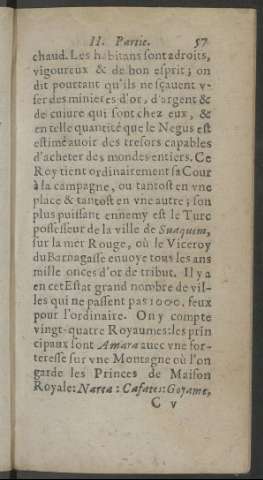 II. Partie. 57
chaud. Les habitans sont adroits,
vigoureux & de bon esprit; on
dit pourtant qu'ils ne sçauent v-
ser des minieres d'or, d'argent &
de cuiure qui sont chez eux, &
en telle quantité que le Negus est
estimé auoir des tresors capables
d'acheter des mondes entiers. Ce
Roy tient ordinairement sa Cour
à la campagne, ou tantost en vne
place & tantost en vne autre; son
plus puissant ennemy est le Turc
possesseur de la ville de Suaquem,
sur la mer Rouge, où le Viceroy
du Barnagasse enuoye tous les ans
mille onces d'or de tribut. Il y a
en cet Estat grand nombre de vil-
les qui ne passent pas 1000. feux
pour l'ordinaire. On y compte
vingt-quatre Royaumes: les prin
cipaux sont Amara auec vne for-
teresse sur vne Montagne où l'on
garde les Princes de Maison
Royale: Narea: Cafates: Goyame,
C v